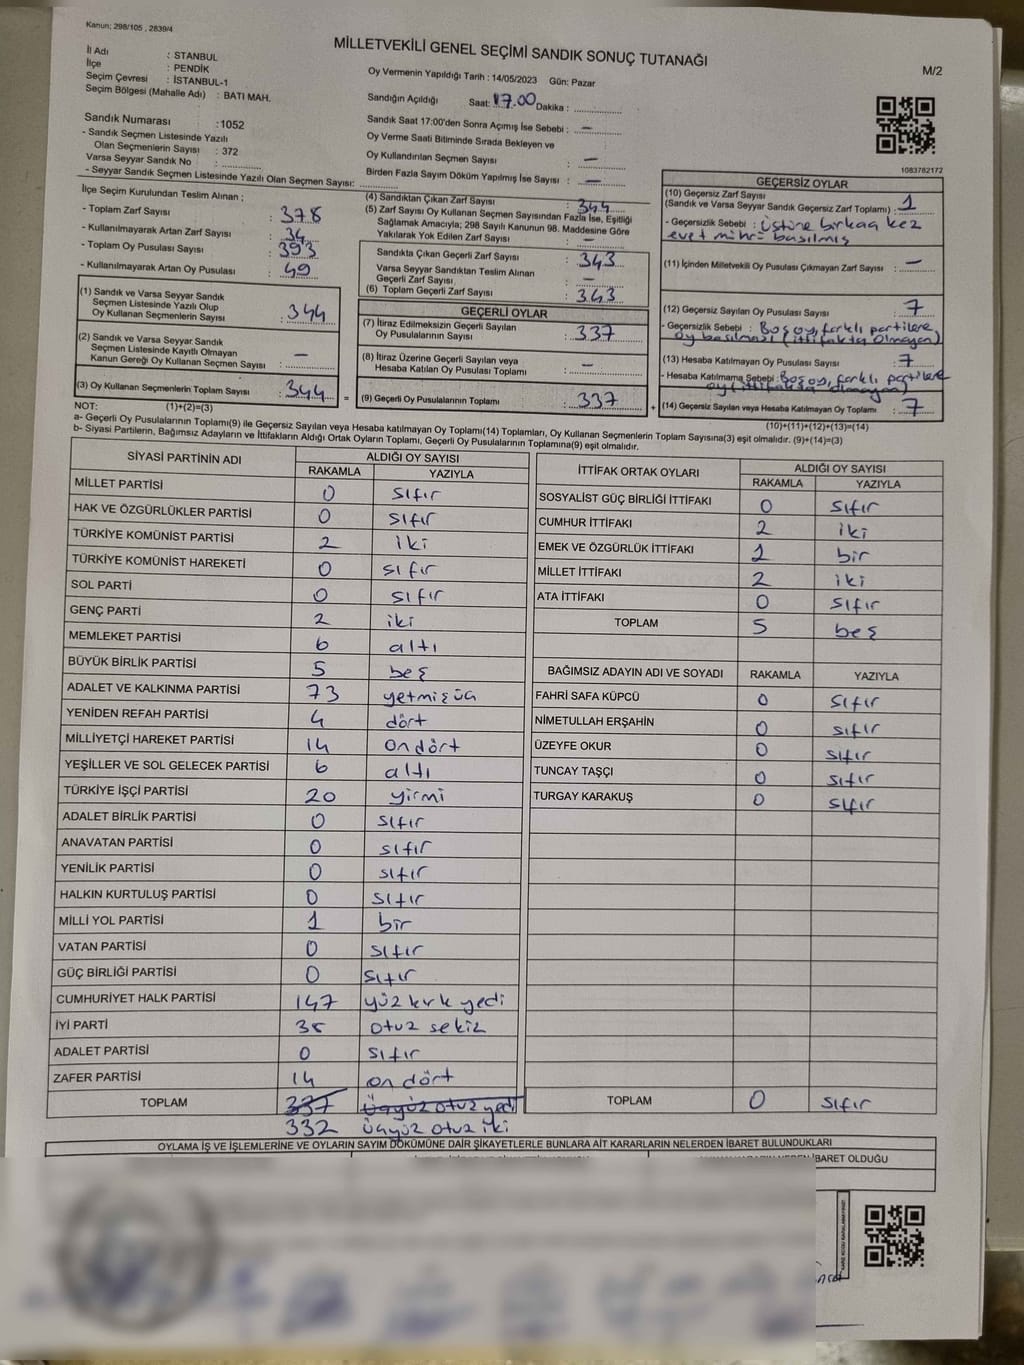 Kanun; 298/105 , 2839/4
MİLLETVEKİLİ GENEL SEÇİMİ SANDIK SONUÇ TUTANAĞI
M/2
İl Adı : STANBUL
İlçe : PENDİK
Seçim Çevresi : İSTANBUL-1
Seçim Bölgesi (Mahalle Adı) : BATI MAH.
Sandık Numarası :1052
- Sandık Seçmen Listesinde Yazılı
Olan Seçmenlerin Sayısı : 372
Varsa Seyyar Sandık No :
- Seyyar Sandık Seçmen Listesinde Yazılı Olan Seçmen Sayısı:
Oy Vermenin Yapıldığı Tarih : 14/05/2023 Gün: Pazar
Sandığın Açıldığı Saat: 17.00 Dakika :
Sandık Saat 17:00'den Sonra Açımış İse Sebebi : —
Oy Verme Saati Bitiminde Sırada Bekleyen ve
Oy Kullandırılan Seçmen Sayısı : —
Birden Fazla Sayım Döküm Yapılmış İse Sayısı : —
1083782172
İlçe Seçim Kurulundan Teslim Alınan ;
- Toplam Zarf Sayısı : 378
- Kullanılmayarak Artan Zarf Sayısı : 34
- Toplam Oy Pusulası Sayısı : 393
- Kullanılmayarak Artan Oy Pusulası : 49
(1) Sandık ve Varsa Seyyar Sandık
Seçmen Listesinde Yazılı Olup
Oy Kullanan Seçmenlerin Sayısı : 344
(2) Sandık ve Varsa Seyyar Sandık
Seçmen Listesinde Kayıtlı Olmayan
Kanun Gereği Oy Kullanan Seçmen Sayısı : —
(3) Oy Kullanan Seçmenlerin Toplam Sayısı : 344
(4) Sandıktan Çıkan Zarf Sayısı : 344
(5) Zarf Sayısı Oy Kullanan Seçmen Sayısından Fazla İse, Eşitliği
Sağlamak Amacıyla; 298 Sayılı Kanunun 98. Maddesine Göre
Yakılarak Yok Edilen Zarf Sayısı : —
Sandıkta Çıkan Geçerli Zarf Sayısı : 343
Varsa Seyyar Sandıktan Teslim Alınan
Geçerli Zarf Sayısı : —
(6) Toplam Geçerli Zarf Sayısı : 343
GEÇERLİ OYLAR
(7) İtiraz Edilmeksizin Geçerli Sayılan
Oy Pusulalarının Sayısı : 337
(8) İtiraz Üzerine Geçerli Sayılan veya
Hesaba Katılan Oy Pusulası Toplamı : —
= (9) Geçerli Oy Pusulalarının Toplamı : 337 +
GEÇERSİZ OYLAR
(10) Geçersiz Zarf Sayısı
(Sandık ve Varsa Seyyar Sandık Geçersiz Zarf Toplamı) : 1
- Geçersizlik Sebebi : üstüne birkaç kez
evet mührü basılmış
(11) İçinden Milletvekili Oy Pusulası Çıkmayan Zarf Sayısı : —
(12) Geçersiz Sayılan Oy Pusulası Sayısı : 7
- Geçersizlik Sebebi : Boş oy, farklı partilere
oy basılması (ittifakta olmayan)
(13) Hesaba Katılmayan Oy Pusulası Sayısı : 7
- Hesaba Katılmama Sebebi : Boş oy, farklı partilere
oy (ittifakta olmayan)
(14) Geçersiz Sayılan veya Hesaba Katılmayan Oy Toplamı : 7
NOT: (1)+(2)=(3)
(10)+(11)+(12)+(13)=(14)
a- Geçerli Oy Pusulalarının Toplamı(9) ile Geçersiz Sayılan veya Hesaba katılmayan Oy Toplamı(14) Toplamları, Oy Kullanan Seçmenlerin Toplam Sayısına(3) eşit olmalıdır. (9)+(14)=(3)
b- Siyasi Partilerin, Bağımsız Adayların ve İttifakların Aldığı Ortak Oyların Toplamı, Geçerli Oy Pusulalarının Toplamına(9) eşit olmalıdır.
SİYASİ PARTİNİN ADI ALDIĞI OY SAYISI
RAKAMLA YAZIYLA
MİLLET PARTİSİ 0 sıfır
HAK VE ÖZGÜRLÜKLER PARTİSİ 0 sıfır
TÜRKİYE KOMÜNİST PARTİSİ 2 iki
TÜRKİYE KOMÜNİST HAREKETİ 0 sıfır
SOL PARTİ 0 sıfır
GENÇ PARTİ 2 iki
MEMLEKET PARTİSİ 6 altı
BÜYÜK BİRLİK PARTİSİ 5 beş
ADALET VE KALKINMA PARTİSİ 73 yetmişüç
YENİDEN REFAH PARTİSİ 4 dört
MİLLİYETÇİ HAREKET PARTİSİ 14 on dört
YEŞİLLER VE SOL GELECEK PARTİSİ 6 altı
TÜRKİYE İŞÇİ PARTİSİ 20 yirmi
ADALET BİRLİK PARTİSİ 0 sıfır
ANAVATAN PARTİSİ 0 sıfır
YENİLİK PARTİSİ 0 sıfır
HALKIN KURTULUŞ PARTİSİ 0 sıfır
MİLLİ YOL PARTİSİ 1 bir
VATAN PARTİSİ 0 sıfır
GÜÇ BİRLİĞİ PARTİSİ 0 sıfır
CUMHURİYET HALK PARTİSİ 147 yüz kırk yedi
İYİ PARTİ 38 otuz sekiz
ADALET PARTİSİ 0 sıfır
ZAFER PARTİSİ 14 on dört
TOPLAM 337 üçyüz otuz yedi
332 üçyüz otuz iki
İTTİFAK ORTAK OYLARI ALDIĞI OY SAYISI
RAKAMLA YAZIYLA
SOSYALİST GÜÇ BİRLİĞİ İTTİFAKI 0 sıfır
CUMHUR İTTİFAKI 2 iki
EMEK VE ÖZGÜRLÜK İTTİFAKI 1 bir
MİLLET İTTİFAKI 2 iki
ATA İTTİFAKI 0 sıfır
TOPLAM 5 beş
BAĞIMSIZ ADAYIN ADI VE SOYADI RAKAMLA YAZIYLA
FAHRİ SAFA KÜPCÜ 0 sıfır
NİMETULLAH ERŞAHİN 0 sıfır
ÜZEYFE OKUR 0 sıfır
TUNCAY TAŞÇI 0 sıfır
TURGAY KARAKUŞ 0 sıfır
TOPLAM 0 sıfır
OYLAMA İŞ VE İŞLEMLERİNE VE OYLARIN SAYIM DÖKÜMÜNE DAİR ŞİKAYETLERLE BUNLARA AİT KARARLARIN NELERDEN İBARET BULUNDUKLARI
İBARET OLDUĞU